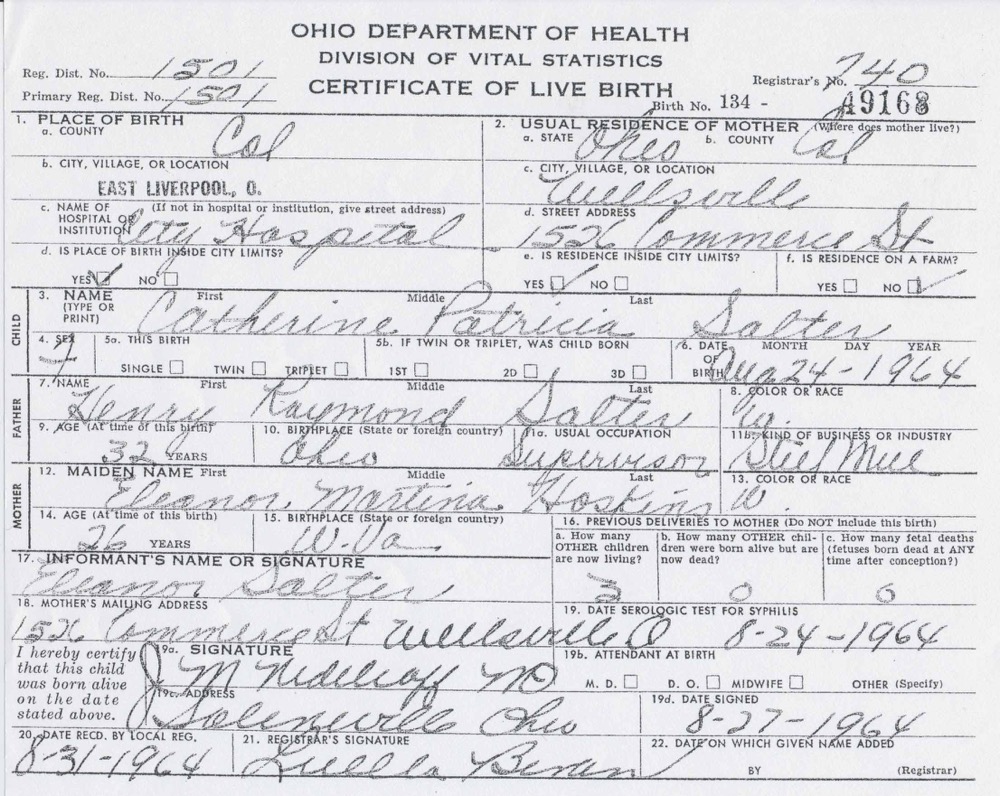 OHIO DEPARTMENT OF HEALTH
DIVISION OF VITAL STATISTICS
CERTIFICATE OF LIVE BIRTH
Reg. Dist. No. 1501
Primary Reg. Dist. No. 1501
Registrar's No. 740
Birth No. 134 - A9168
1. PLACE OF BIRTH
a. COUNTY Col
b. CITY, VILLAGE, OR LOCATION
EAST LIVERPOOL, O.
c. NAME OF HOSPITAL OR INSTITUTION (If not in hospital or institution, give street address)
City Hospital
d. IS PLACE OF BIRTH INSIDE CITY LIMITS?
YES ☑ NO ☐
2. USUAL RESIDENCE OF MOTHER (Where does mother live?)
a. STATE Ohio b. COUNTY Col
c. CITY, VILLAGE, OR LOCATION
Wellsville
d. STREET ADDRESS
1526 Commerce St
e. IS RESIDENCE INSIDE CITY LIMITS? f. IS RESIDENCE ON A FARM?
YES ☑ NO ☐ YES ☐ NO ☑
CHILD
3. NAME (TYPE OR PRINT) First Middle Last
Catherine Patricia Salter
4. SEX F
5a. THIS BIRTH
SINGLE ☐ TWIN ☐ TRIPLET ☐
5b. IF TWIN OR TRIPLET, WAS CHILD BORN
1ST ☐ 2D ☐ 3D ☐
6. DATE OF BIRTH MONTH DAY YEAR
Aug 24-1964
FATHER
7. NAME First Middle Last
Henry Raymond Salter
8. COLOR OR RACE
W.
9. AGE (At time of this birth)
32 YEARS
10. BIRTHPLACE (State or foreign country)
Ohio
11a. USUAL OCCUPATION
Supervisor
11b. KIND OF BUSINESS OR INDUSTRY
Steel Mill
MOTHER
12. MAIDEN NAME First Middle Last
Eleanor Martina Hoskins
13. COLOR OR RACE
W
14. AGE (At time of this birth)
26 YEARS
15. BIRTHPLACE (State or foreign country)
W. Va
16. PREVIOUS DELIVERIES TO MOTHER (Do NOT include this birth)
a. How many OTHER children are now living?
3
b. How many OTHER children were born alive but are now dead?
0
c. How many fetal deaths (fetuses born dead at ANY time after conception?)
0
17. INFORMANT'S NAME OR SIGNATURE
Eleanor Salter
18. MOTHER'S MAILING ADDRESS
1526 Commerce St Wellsville O
19. DATE SEROLOGIC TEST FOR SYPHILIS
8-24-1964
I hereby certify
that this child
was born alive
on the date
stated above.
19a. SIGNATURE
J M MD
19b. ATTENDANT AT BIRTH
M. D. ☐ D. O. ☐ MIDWIFE ☐ OTHER (Specify)
19c. ADDRESS
Salineville Ohio
19d. DATE SIGNED
8-27-1964
20. DATE RECD. BY LOCAL REG.
8-31-1964
21. REGISTRAR'S SIGNATURE
Luella Bevan
22. DATE ON WHICH GIVEN NAME ADDED
BY (Registrar)